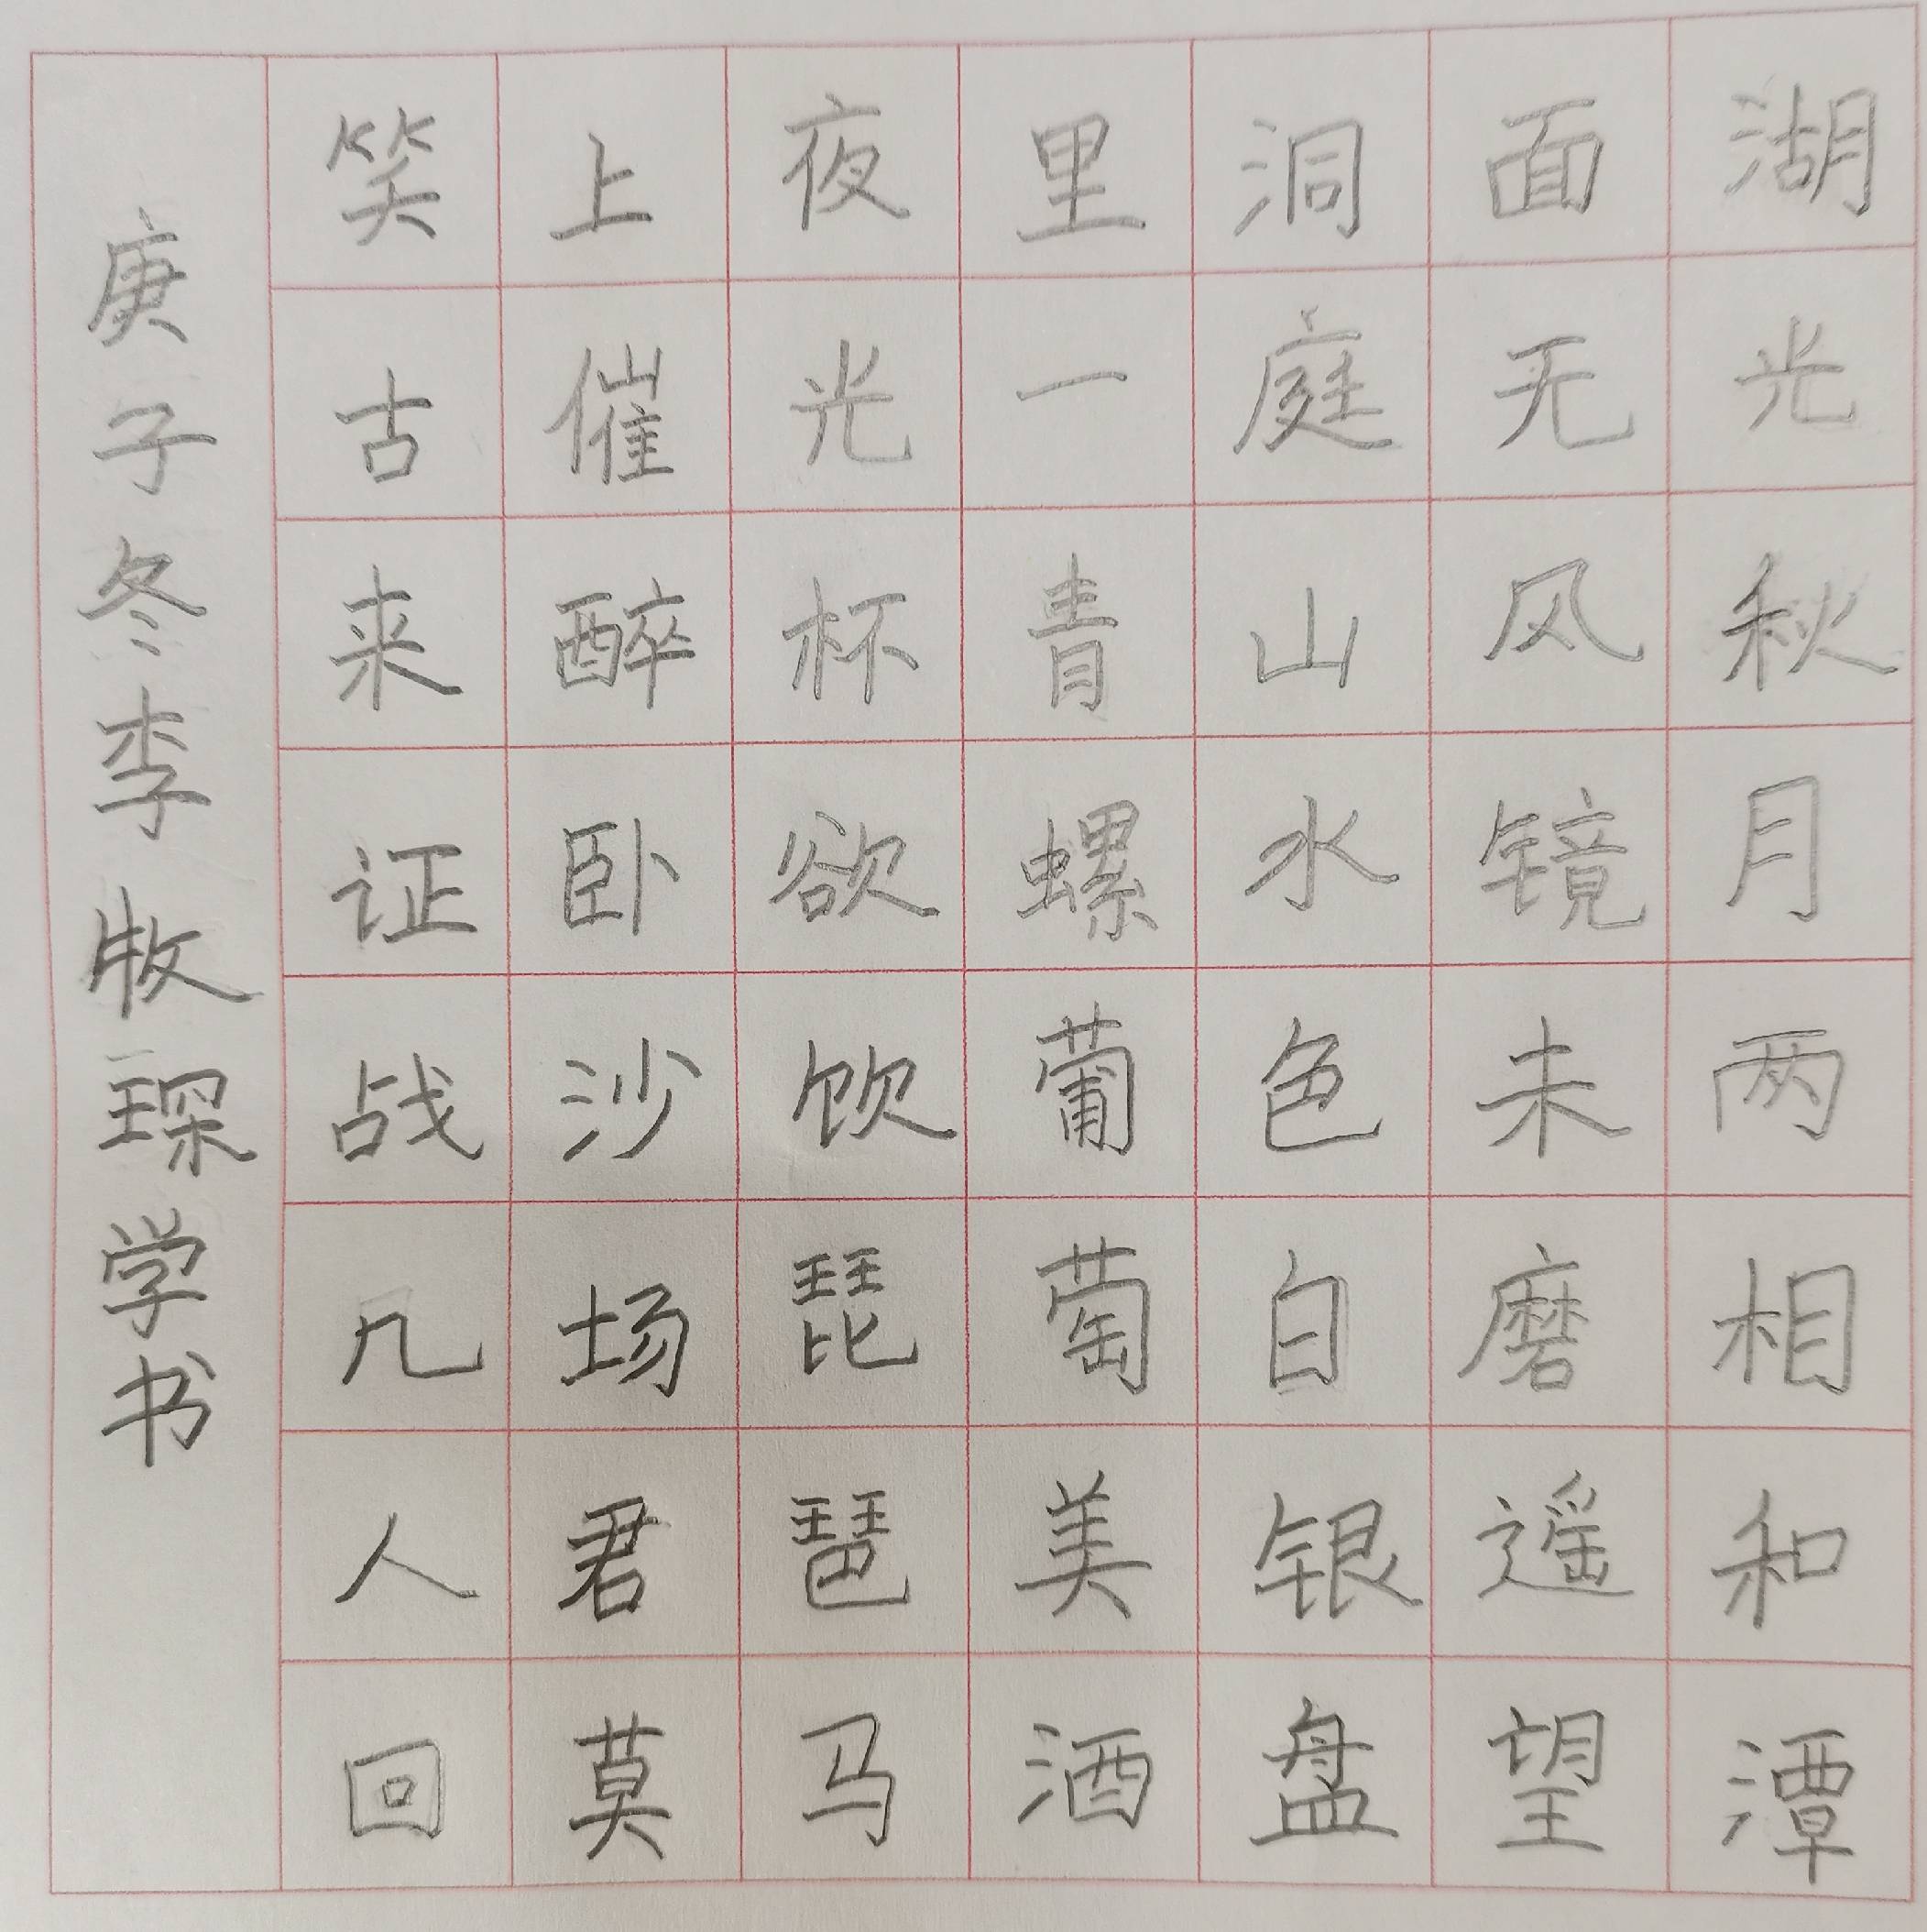 湖光秋月两相和潭
面无风镜未磨遥望
洞庭山水色白银盘
里一青螺葡萄美酒
夜光杯欲饮琵琶马
上催醉卧沙场君莫
笑古来证战几人回
庚子冬李牧琛学书